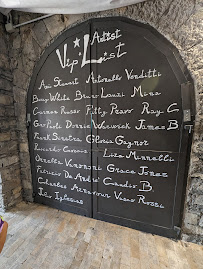 Artist
Vip's List
Amii Stewart Antonello Venditti
Barry White Bruno Lauzi Mina
Carmen Russo Patty Pravo Ray C
Gino Paoli Dionne Warwick James B
Frank Sinatra Gloria Gaynor
Riccardo Liza Minnelli
Ornella Vanoni Grace Jones
Fabrizio De André Claudio B
Charles Aznavour Vasco Rossi
Julio Iglesias